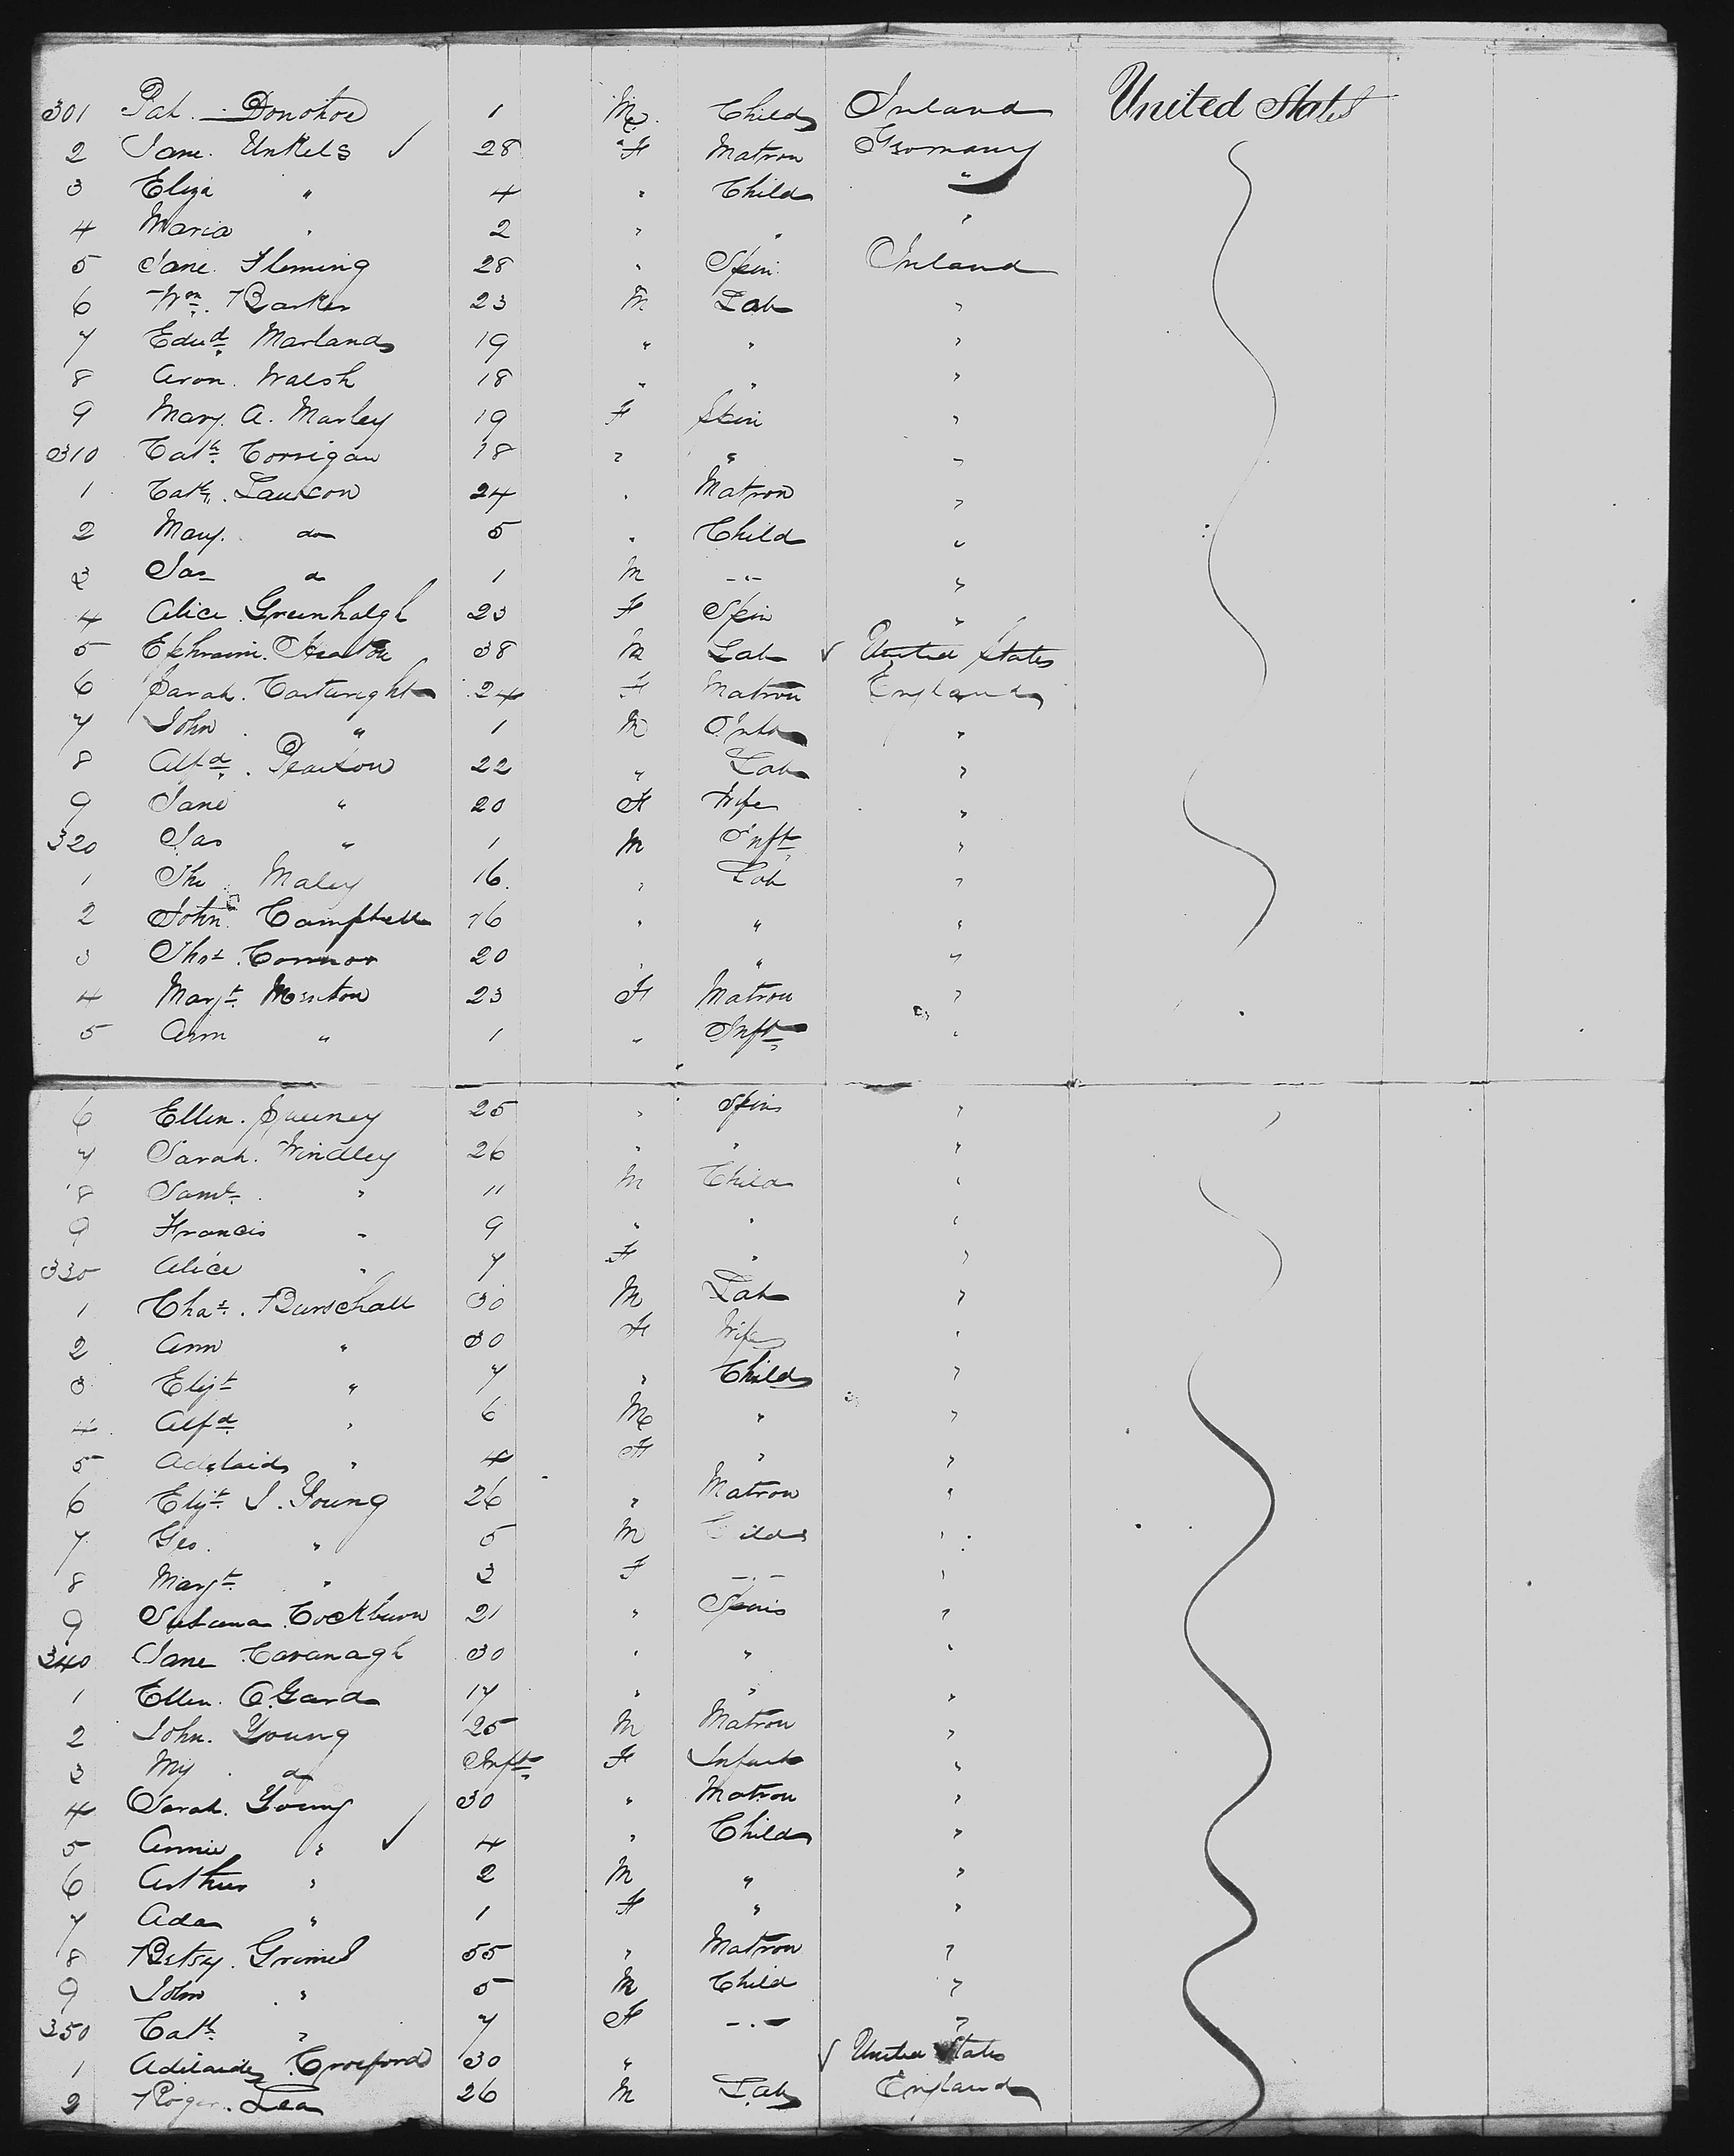 301 Pat. Donohoe 1 M. Child Ireland United States
2 Jane. Unkels ✓ 28 F Matron Germany
3 Eliza " 4 " Child "
4 Maria " 2 " " "
5 Jane. Fleming 28 " Spin Ireland
6 Wm. Barker 23 M. Lab "
7 Edwd. Marland 19 " " "
8 Aron. Walsh 18 " " "
9 Mary. A. Marley 19 F Spin "
310 Cath. Corrigan 18 " " "
1 Cath. Lawson 24 " Matron "
2 Mary. do 5 " Child "
3 Jas do 1 M -"- "
4 Alice. Greenhalgh 23 F Spin "
5 Ephraim. Heaton 38 M Lab ✓ United States
6 Sarah. Cartwright 24 F Matron England
7 John " 1 M Inft "
8 Alfd. Pearson 22 " Lab "
9 Jane " 20 F Wife "
320 Jas " 1 M Inft "
1 Maley 16. " Lab "
2 John Campbell 16 " " "
3 Thos. Connor 20 " " "
4 Margt. 23 F Matron "
5 Ann " 1 " Inft "
6 Ellen. Sweeney 25 " Spins "
7 Sarah. Windley 26 " " "
8 Saml. " 11 M Child "
9 Francis " 9 " " "
330 Alice " 7 F " "
1 Chas. Burschall 30 M Lab "
2 Ann " 30 F Wife "
3 Elizt " 7 " Child "
4 Alfd. " 6 M " "
5 Adelaide " 4 F " "
6 Elizt. J. Young 26 " Matron "
7 Geo. " 5 M Child "
8 Margt. " 3 F -"- "
9 Cockburn 21 " Spins "
340 Jane Cavanagh 30 " " "
1 Ellen. O.Gard 17 " " "
2 John. Young 25 M Matron "
3 My. do Inft F Infant "
4 Sarah. Young 30 " Matron "
5 Annie " ✓ 4 " Child "
6 Arthur " 2 M " "
7 Ada " 1 F " "
8 Betsy. Grimes 55 " Matron "
9 John " 5 M Child "
350 Cath. " 7 F -"- "
1 Adelaide 30 " ✓ United States
2 Roger. Lea 26 M Lab England